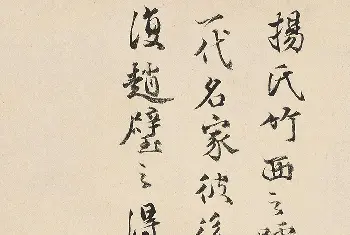 楊氏竹西之
一代名家彼後
復趙璧之得